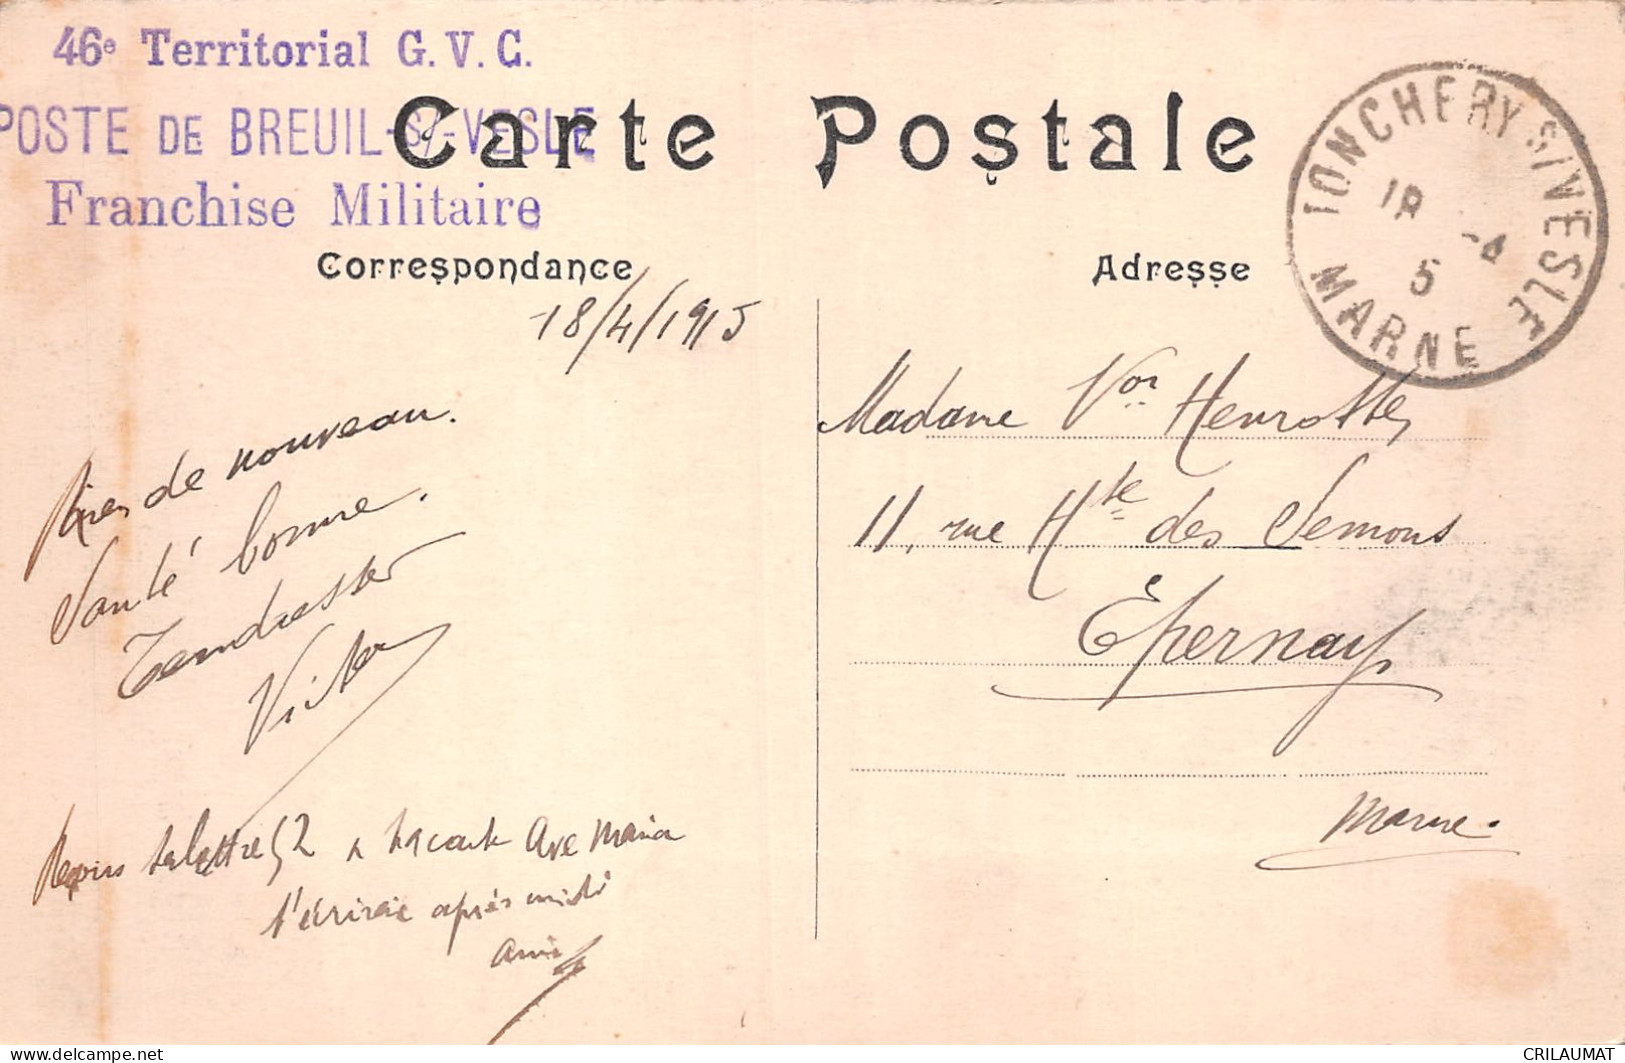 46e Territorial G. V. C.
POSTE DE BREUIL-S/-VESLE
Franchise Militaire
Carte Postale
Correspondance
Adresse
JONCHERY S/VESLE
18 -4
5
MARNE
18/4/1915
Rien de nouveau.
Santé bonne.
Tendresses
Victor
Reçois ta lettre 52 & ta carte Ave Maria
t'écrirai après midi
Madame Vor Henrotte,
11, rue Hte des Semons
Épernay
Marne.
CRILAUMAT